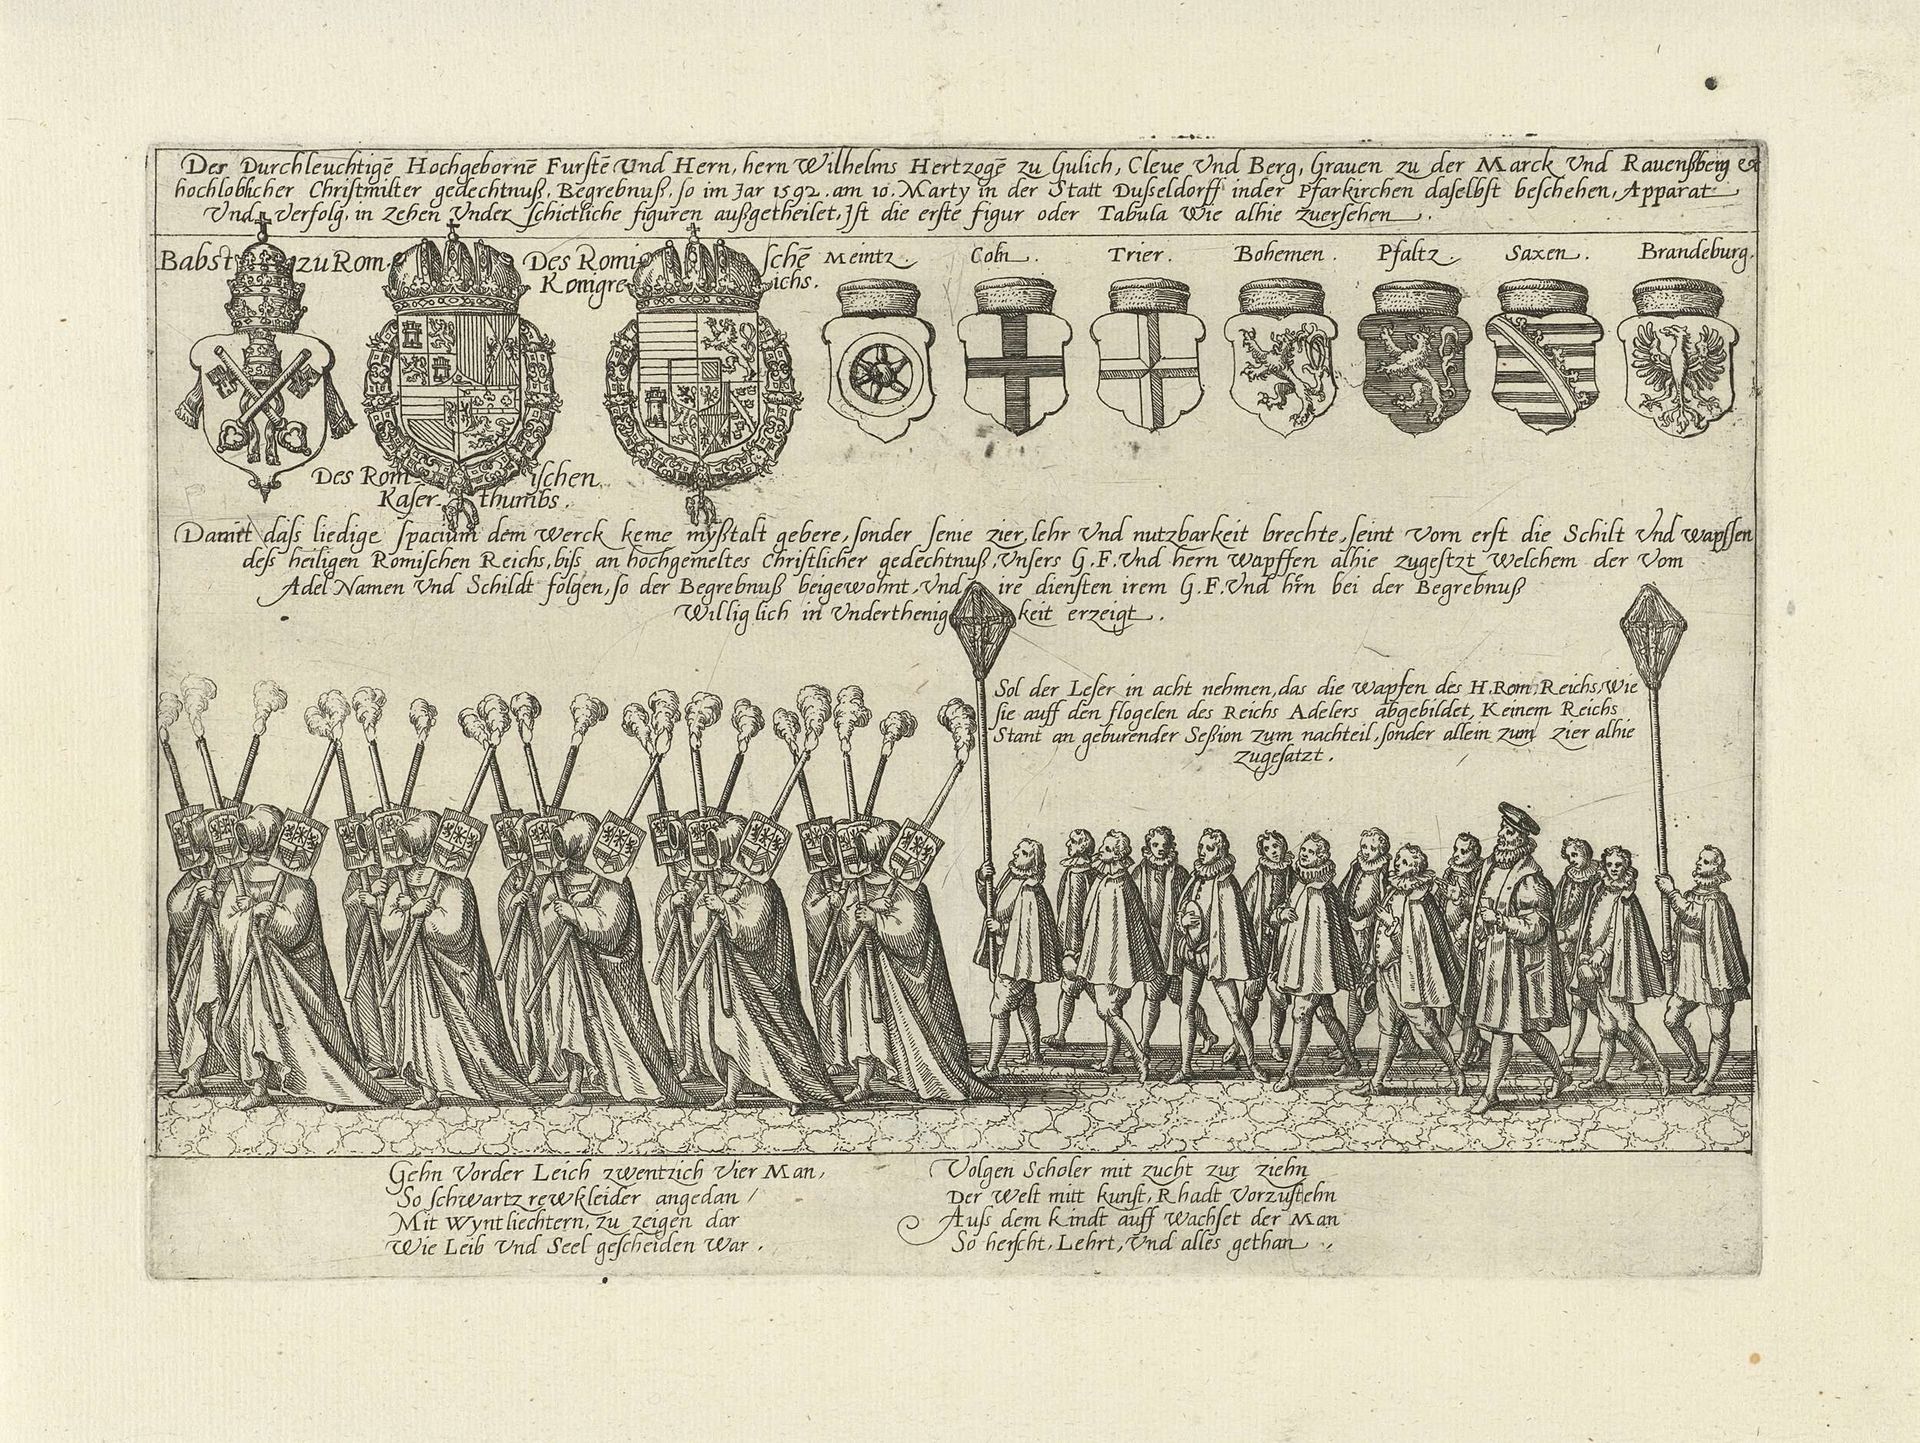 Des Durchleuchtigē Hochgebornē Furstē Und Hern, hern Wilhelms Hertzogē zu Gulich, Cleve Und Berg, Graven zu der Marck Und Ravenßberg &
hochloblicher Christmilter gedechtnuß, Begrebnuß, so im Jar 1592. am 10. Marty in der Statt Dusseldorff inder Pfarkirchen daselbst beschehen, Apparat
Und Verfolg, in zehen Under schietliche figuren außgetheilet, Ist die erste figur oder Tabula Wie alhie zuersehen.
Babst zu Rom.
Des Romischē
Konigreichs.
Meintz.
Coln.
Trier.
Bohemen.
Pfaltz.
Saxen.
Brandeburg.
Des Romischen
Kaserthumbs.
Damit dass liedige spacium dem Werck keine myßtalt gebere, sonder senie zier, lehr Und nutzbarkeit brechte, seint Vorn erst die Schilt Und Wapffen
dess heiligen Romischen Reichs, biss an hochgemeltes Christlicher gedechtnuß, Unsers G. F. Und hern Wapffen alhie zugestzt Welchem der Vom
Adel Namen Und Schildt folgen, so der Begrebnuß beigewohnt, Und ire diensten irem G. F. Und hrn bei der Begrebnuß
Willig lich in Underthenigkeit erzeigt.
Sol der Leser in acht nehmen, das die Wapfen des H. Rom. Reichs, Wie
sie auff den flogelen des Reichs Adelers abgebildet, Keinem Reichs
Stant an geburender Seßion zum nachteil, sonder allein zum zier alhie
zugesatzt.
Gehn Vorder Leich zwentzich Vier Man,
So schwartz rewkleider angedan /
Mit Wyntliechtern, zu zeigen dar
Wie Leib Und Seel gescheiden War.
Volgen Scholer mit zucht zur ziehn
Der Welt mitt kunst, Rhadt Vorzustehn
Auss dem kindt auff Wachset der Man
So herscht, Lehrt, Und alles gethan.